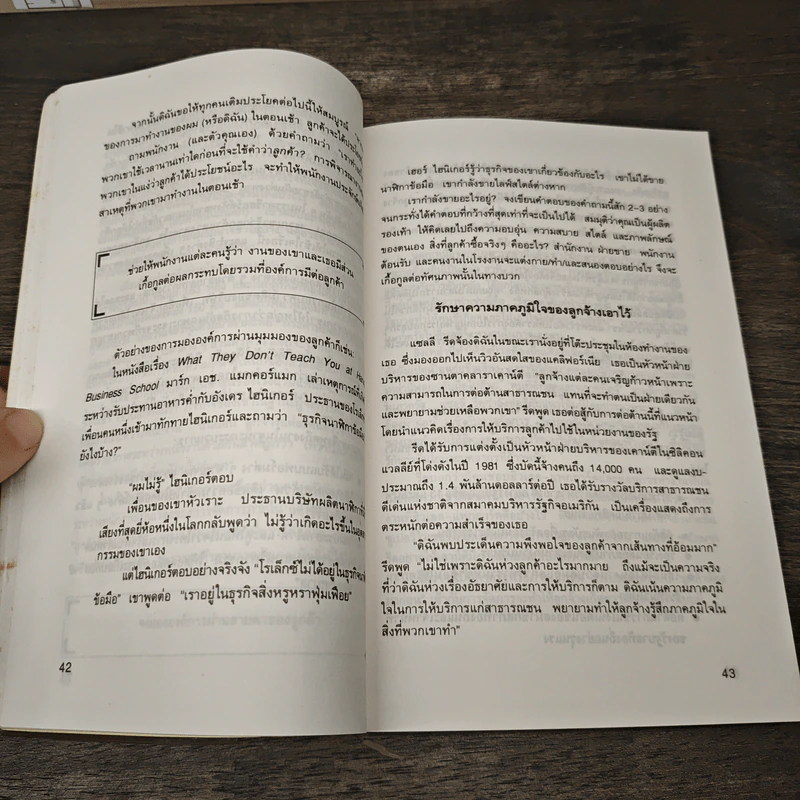 จากนั้นดิฉันขอให้ทุกคนเติมประโยคต่อไปนี้ให้สมบูรณ์
ของการมาทำงานของผม (หรือดิฉัน) ในตอนเช้า ลูกค้าจะได้
ถามพนักงาน (และตัวคุณเอง) ด้วยคำถามว่า
พวกเขาใช้เวลานานเท่าใดก่อนที่จะใช้คำว่าลูกค้า?
พวกเขาในแง่ว่าลูกค้าได้ประโยชน์อะไร จะทำให้พนักงาน
สาเหตุที่พวกเขามาทำงานในตอนเช้า
ช่วยให้พนักงานแต่ละคนรู้ว่า งานของเขาและเธอมีส่วน
เกื้อกูลต่อผลกระทบโดยรวมที่องค์การมีต่อลูกค้า
ตัวอย่างของการมององค์การผ่านมุมมองของลูกค้าก็เช่น:
ในหนังสือเรื่อง What They Don't Teach You at
Business School มาร์ก เอช. แมกคอร์แมก เล่าเหตุการณ์
ระหว่างรับประทานอาหารค่ำกับอังเดร ไฮนิเกอร์ ประธานของ
เพื่อนคนหนึ่งเข้ามาทักทายไฮนิเกอร์และถามว่า "ธุรกิจนาฬิกา
ยังไงบ้าง?"
"ผมไม่รู้" ไฮนิเกอร์ตอบ
เพื่อนของเขาหัวเราะ ประธานบริษัทผลิตนาฬิกา
เสียงที่สุดยี่ห้อหนึ่งในโลกกลับพูดว่า ไม่รู้ว่าเกิดอะไรขึ้นใน
กรรมของเขาเอง
แต่ไฮนิเกอร์ตอบอย่างจริงจัง "โรเล็กซ์ไม่ได้อยู่ในธุรกิจ
ข้อมือ" เขาพูดต่อ "เราอยู่ในธุรกิจสิ่งหรูหราฟุ่มเฟือย"
42
เฮอร์ ไฮนิเกอร์รู้ว่าธุรกิจของเขาเกี่ยวข้องกับอะไร เขาไม่ได้ขาย
นาฬิกาข้อมือ เขากำลังขายไลฟ์สไตล์ต่างหาก
เรากำลังขายอะไรอยู่? จงเขียนคำตอบของคำถามนี้สัก 2-3 อย่าง
จนกระทั่งได้คำตอบที่กว้างที่สุดเท่าที่จะเป็นไปได้ สมมุติว่าคุณเป็นผู้ผลิต
รองเท้า ให้คิดเลยไปถึงความอบอุ่น ความสบาย สไตล์ และภาพลักษณ์
ของตนเอง สิ่งที่ลูกค้าซื้อจริงๆ คืออะไร? สำนักงาน ฝ่ายขาย พนักงาน
ต้อนรับ และคนงานในโรงงานจะแต่งกาย/ทำ/และสนองตอบอย่างไร จึงจะ
เกื้อกูลต่อทัศนภาพนั้นในทางบวก
รักษาความภาคภูมิใจของลูกจ้างเอาไว้
แซลลี รีดจ้องดิฉันในขณะเรานั่งอยู่ที่โต๊ะประชุมในห้องทำงานของ
เธอ ซึ่งมองออกไปเห็นวิวอันสดใสของแคลิฟอร์เนีย เธอเป็นหัวหน้าฝ่าย
บริหารของซานตาคลาราเคาน์ตี "ลูกจ้างแต่ละคนเจริญก้าวหน้าเพราะ
ความสามารถในการต่อต้านสาธารณชน แทนที่จะทำตนเป็นฝ่ายเดียวกัน
และพยายามช่วยเหลือพวกเขา" รีดพูด เธอต่อสู้กับการต่อต้านนี้ที่แนวหน้า
โดยนำแนวคิดเรื่องการให้บริการลูกค้าไปใช้ในหน่วยงานของรัฐ
รีดได้รับการแต่งตั้งเป็นหัวหน้าฝ่ายบริหารของเคาน์ตีในซิลิคอน
แวลลีย์ที่โด่งดังในปี 1981 ซึ่งบัดนี้จ้างคนถึง 14,000 คน และดูแลงบ-
ประมาณถึง 1.4 พันล้านดอลลาร์ต่อปี เธอได้รับรางวัลบริการสาธารณชน
ดีเด่นแห่งชาติจากสมาคมบริหารรัฐกิจอเมริกัน เป็นเครื่องแสดงถึงการ
ตระหนักต่อความสำเร็จของเธอ
"ดิฉันพบประเด็นความพึงพอใจของลูกค้าจากเส้นทางที่อ้อมมาก"
รีดพูด "ไม่ใช่เพราะดิฉันห่วงลูกค้าอะไรมากมาย ถึงแม้จะเป็นความจริง
ที่ว่าดิฉันห่วงเรื่องอัธยาศัยและการให้บริการก็ตาม ดิฉันเน้นความภาคภูมิ
ใจในการให้บริการแก่สาธารณชน พยายามทำให้ลูกจ้างรู้สึกภาคภูมิใจใน
สิ่งที่พวกเขาทำ"
43